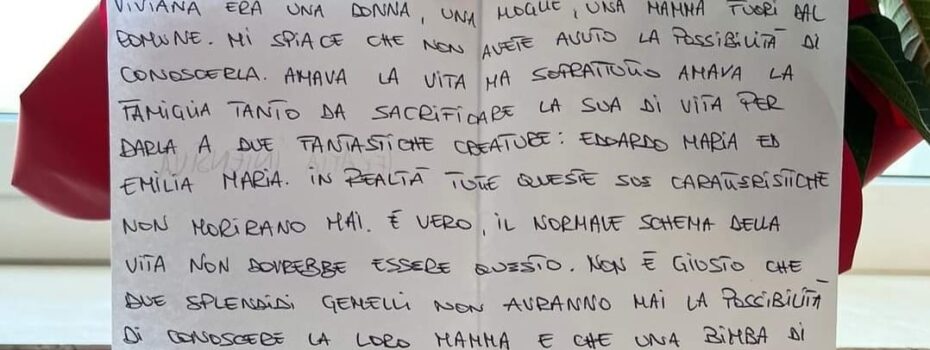 VIVIANA ERA UNA DONNA, UNA MOGLIE, UNA MAMMA FUORI DAL
COMUNE. MI SPIACE CHE NON AVETE AVUTO LA POSSIBILITÀ DI
CONOSCERLA. AMAVA LA VITA MA SOPRATTUTTO AMAVA LA
FAMIGLIA TANTO DA SACRIFICARE LA SUA DI VITA PER
DARLA A DUE FANTASTICHE CREATURE: EDOARDO MARIA ED
EMILIA MARIA. IN REALTÀ TUTTE QUESTE SUE CARATTERISTICHE
NON MORIRANO MAI. È VERO, IL NORMALE SCHEMA DELLA
VITA NON DOVREBBE ESSERE QUESTO. NON È GIUSTO CHE
DUE SPLENDIDI GEMELLI NON AVRANNO MAI LA POSSIBILITÀ
DI CONOSCERE LA LORO MAMMA E CHE UNA BIMBA DI